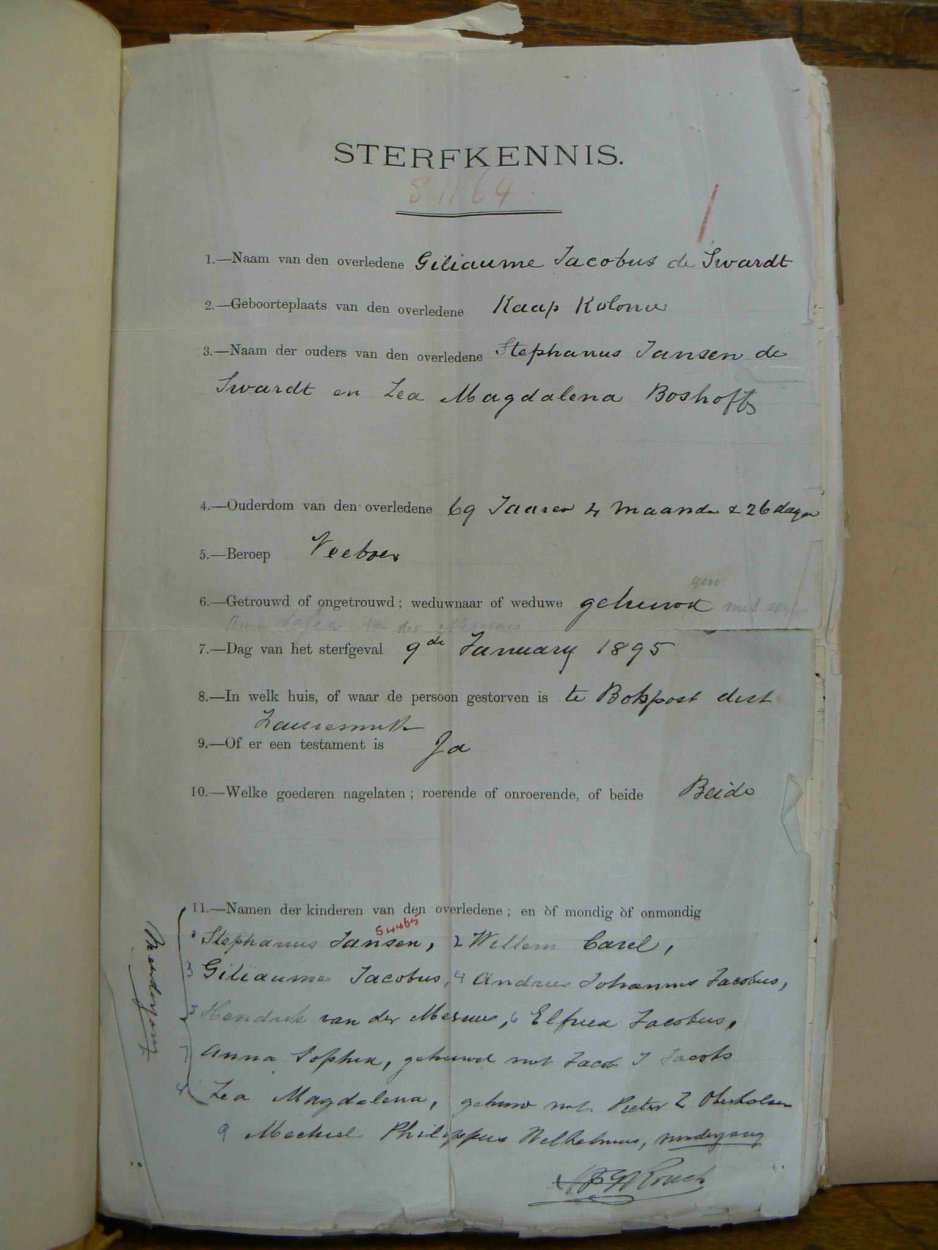 STERFKENNIS.
S 1164
1.—Naam van den overledene Giliaume Jacobus de Swardt
2.—Geboorteplaats van den overledene Kaap Kolonie
3.—Naam der ouders van den overledene Stephanus Jansen de
Swardt en Lea Magdalena Boshoff
4.—Ouderdom van den overledene 69 Jaaren 4 maanden & 26 dagen
5.—Beroep Veeboer
6.—Getrouwd of ongetrouwd; weduwnaar of weduwe gehuwd met
7.—Dag van het sterfgeval 9de January 1895
8.—In welk huis, of waar de persoon gestorven is te Bokpost dist
9.—Of er een testament is Ja
10.—Welke goederen nagelaten; roerende of onroerende, of beide Beide
11.—Namen der kinderen van den overledene; en òf mondig òf onmondig
1 Stephanus Jansen, 2 Willem Carel,
3 Giliaume Jacobus, 4 Andries Johannes Jacobus,
5 Hendrik van der Merwe, 6 Jacobus,
7 Anna Sophia, gehuwd met Jacob J Jacobs
8 Lea Magdalena, gehuwd met Pieter Z Oberholzer
9 Mechiel Philippus Wilhelmus,